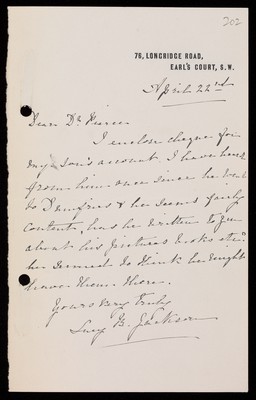 202
76, LONGRIDGE ROAD,
EARL'S COURT, S.W.
April 22nd
Dear Dr
I enclose cheque for
my son's account I have heard
from him once since he went
to Dumfries & he seems fairly
content, has he written to you
about his pictures books etc.
he seemed to think he ought
have them there.
Yours very truly
Lucy B. Jackson